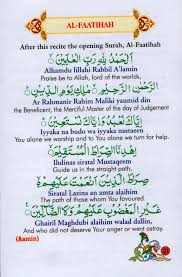 AL-FAATIHAH
After this recite the opening Surah, Al-Faatihah
اَلْحَمْدُ لِلّٰهِ رَبِّ الْعٰلَمِيْنَ
Alhamdu lillahi Rabbil A'lamin
Praise be to Allah, lord of the worlds,
الرَّحْمٰنِ الرَّحِيْمِ مٰلِكِ يَوْمِ الدِّيْنِ
Ar Rahmanir Rahim Maliki yaumid din
the Beneficient, the Merciful Master of the day of Judgement
اِيَّاكَ نَعْبُدُ وَاِيَّاكَ نَسْتَعِيْنُ
Iyyaka na budu wa iyyaka nastaeen
You alone we worship and to You alone we turn for help.
اِهْدِنَا الصِّرَاطَ الْمُسْتَقِيْمَ
Ihdinas siratal Mustaqeem
Guide us in the straight path,
صِرَاطَ الَّذِيْنَ اَنْعَمْتَ عَلَيْهِمْ
Siratal Lazina an amta alaihim
The path of those whom You favoured
غَيْرِ الْمَغْضُوْبِ عَلَيْهِمْ وَلَا الضَّآلِّيْنَ
Ghairil Maghdubi alaihim walad dallin.
And who did not deserve Your anger or went stray.
(Aamin)